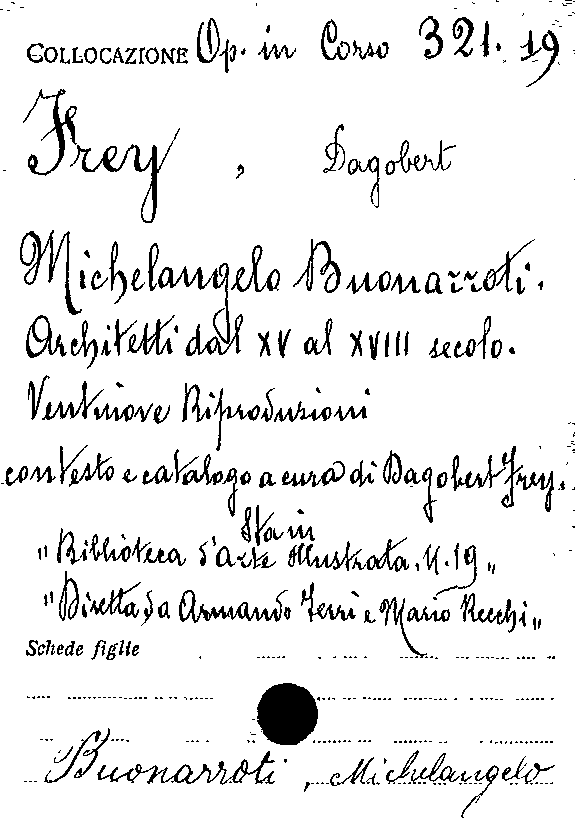 COLLOCAZIONE Op. in Corso 321. 19
Frey, Dagobert
Michelangelo Buonarroti.
Architetti dal XV al XVIII secolo.
Ventinove Riproduzioni
con testo e catalogo a cura di Dagobert Frey.
Sta in
"Biblioteca d'Arte Illustrata, N. 19"
"Diretta da Armando Ferri e Mario Recchi"
Schede figlie
Buonarroti, Michelangelo